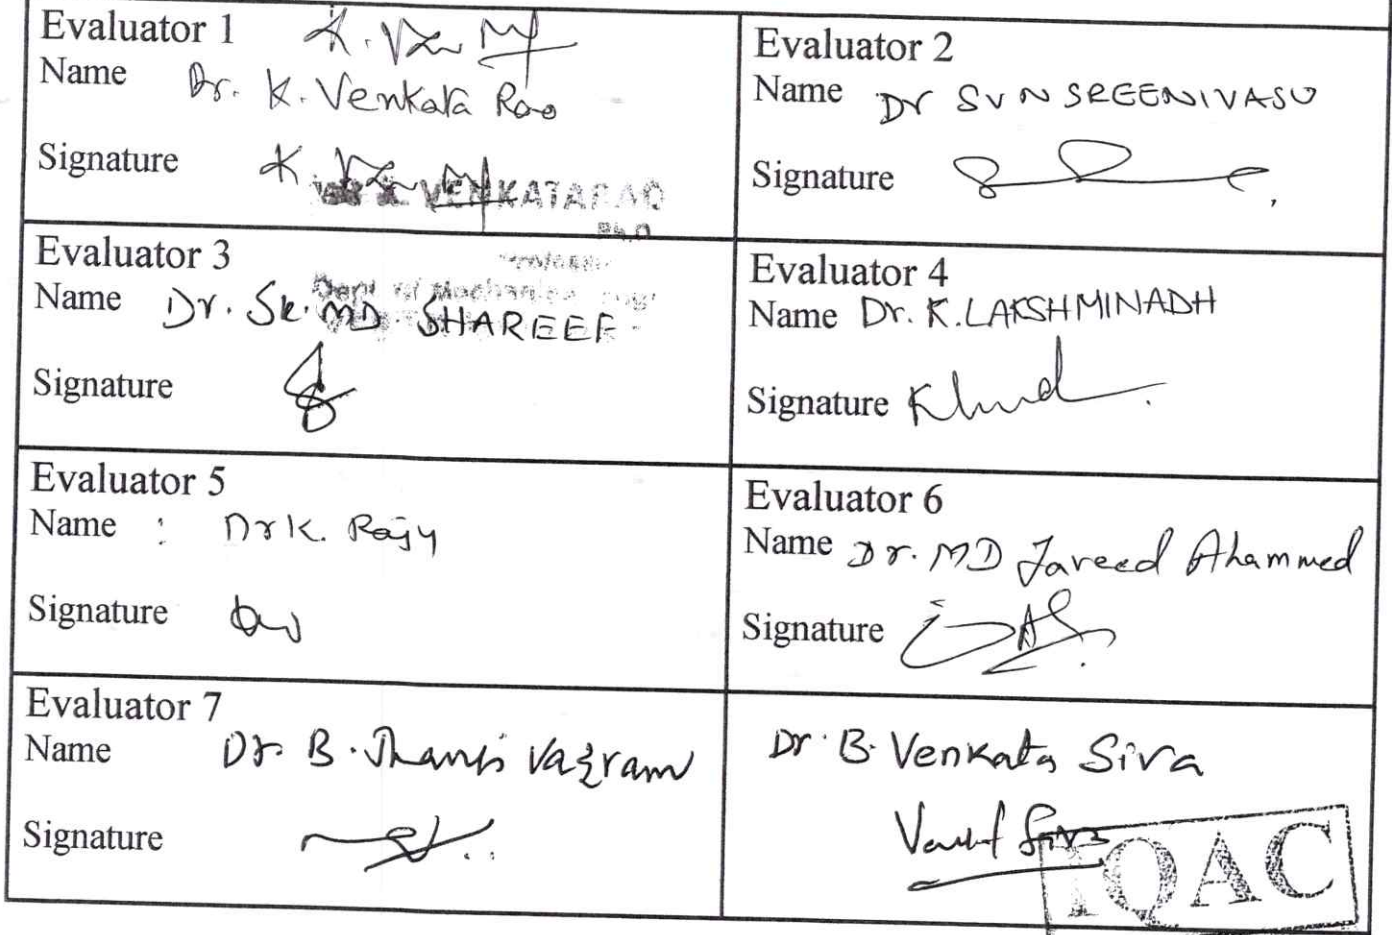 Evaluator 1
Name Dr. K. Venkata Rao
Signature
VENKATARAO
Ph.D
Evaluator 2
Name Dr SVN SREENIVASU
Signature
Evaluator 3
Dept of Mechanical
Name Dr. Sk. MD. SHAREEF
Signature
Evaluator 4
Name Dr. K. LAKSHMINADH
Signature
Evaluator 5
Name : Dr K. Raju
Signature
Evaluator 6
Name Dr. MD Jareed Ahammed
Signature
Evaluator 7
Name Dr. B. Jhansi Vazram
Signature
Dr. B. Venkata Siva
IQAC